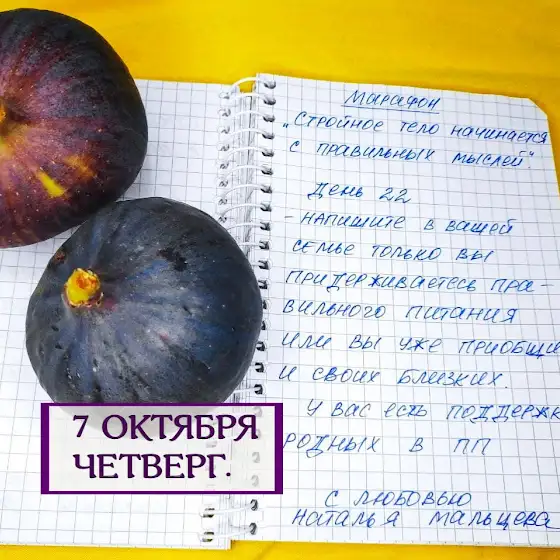 Марафон
„Стройное тело начинается
с правильных мыслей".
День 22
- напишите в вашей
семье только вы
придерживаетесь пра-
вильного питания
или вы уже приобщи
и своих близких.
У вас есть поддержк
родных в ПП
С любовью
Наталья Мальцева
7 ОКТЯБРЯ
ЧЕТВЕРГ.